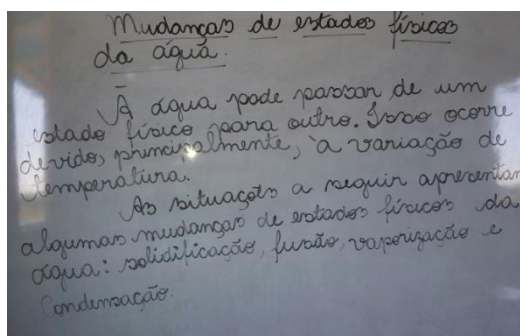 Mudanças de estados físicos
da água.
A água pode passar de um
estado físico para outro. Isso ocorre
devido, principalmente, à variação de
temperatura.
As situações a seguir apresentam
algumas mudanças de estados físicos da
água: solidificação, fusão, vaporização e
condensação.